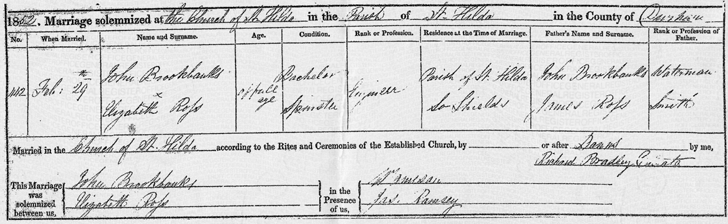 1852. Marriage solemnized at the Church of St. Hilda in the Parish of St. Hilda in the County of Durham
No. When Married. Name and Surname. Age. Condition. Rank or Profession. Residence at the Time of Marriage. Father's Name and Surname. Rank or Profession of Father.
442 Feb: 29 John Brookbanks of full age Bachelor Engineer Parish of St. Hilda John Brookbanks Waterman
Elizabeth Ross Spinster So Shields James Ross Smith
Married in the Church of St. Hilda according to the Rites and Ceremonies of the Established Church, by or after Banns by me,
Richard
This Marriage was solemnized between us, John Brookbanks in the Presence of us, Jameson
Elizabeth Ross Jas. Ramsey